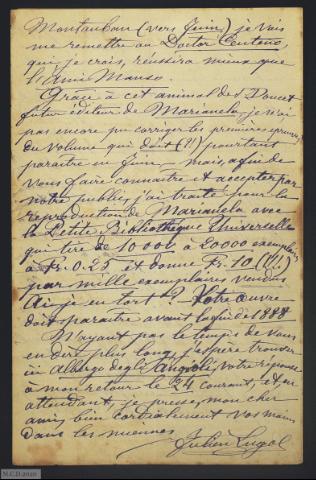 Montauban (vers Juin) je vais
me remettre au Doctor Centeno,
qui, je crois, réussira mieux que
l'Ami Manso.
Grâce à cet animal de Doucet
futur éditeur de Marianela, je n'ai
pas encore pu corriger les premières épreuves
du volume qui doit (?!) pourtant
paraître en Juin, mais, afin de
vous faire connaître et accepter par
notre public, j'ai traité pour la
reproduction de Marianela avec
la Petite Bibliothèque Universelle
qui tire de 10000 à 20000 exemplaires
à Fr. 0.25 et donne Fr. 10 (!!)
par mille exemplaires vendus
Ai-je eu tort? Votre œuvre
doit paraître avant la fin de 1888
N'ayant pas le temps de vous
en dire plus long, j'espère trouver
ici Albergo degli Angioli, votre réponse
à mon retour le 24 courant, et, en
attendant, je presse, mon cher
ami, bien cordialement vos mains
dans les miennes
Julien Lugol
N.C.D 2020